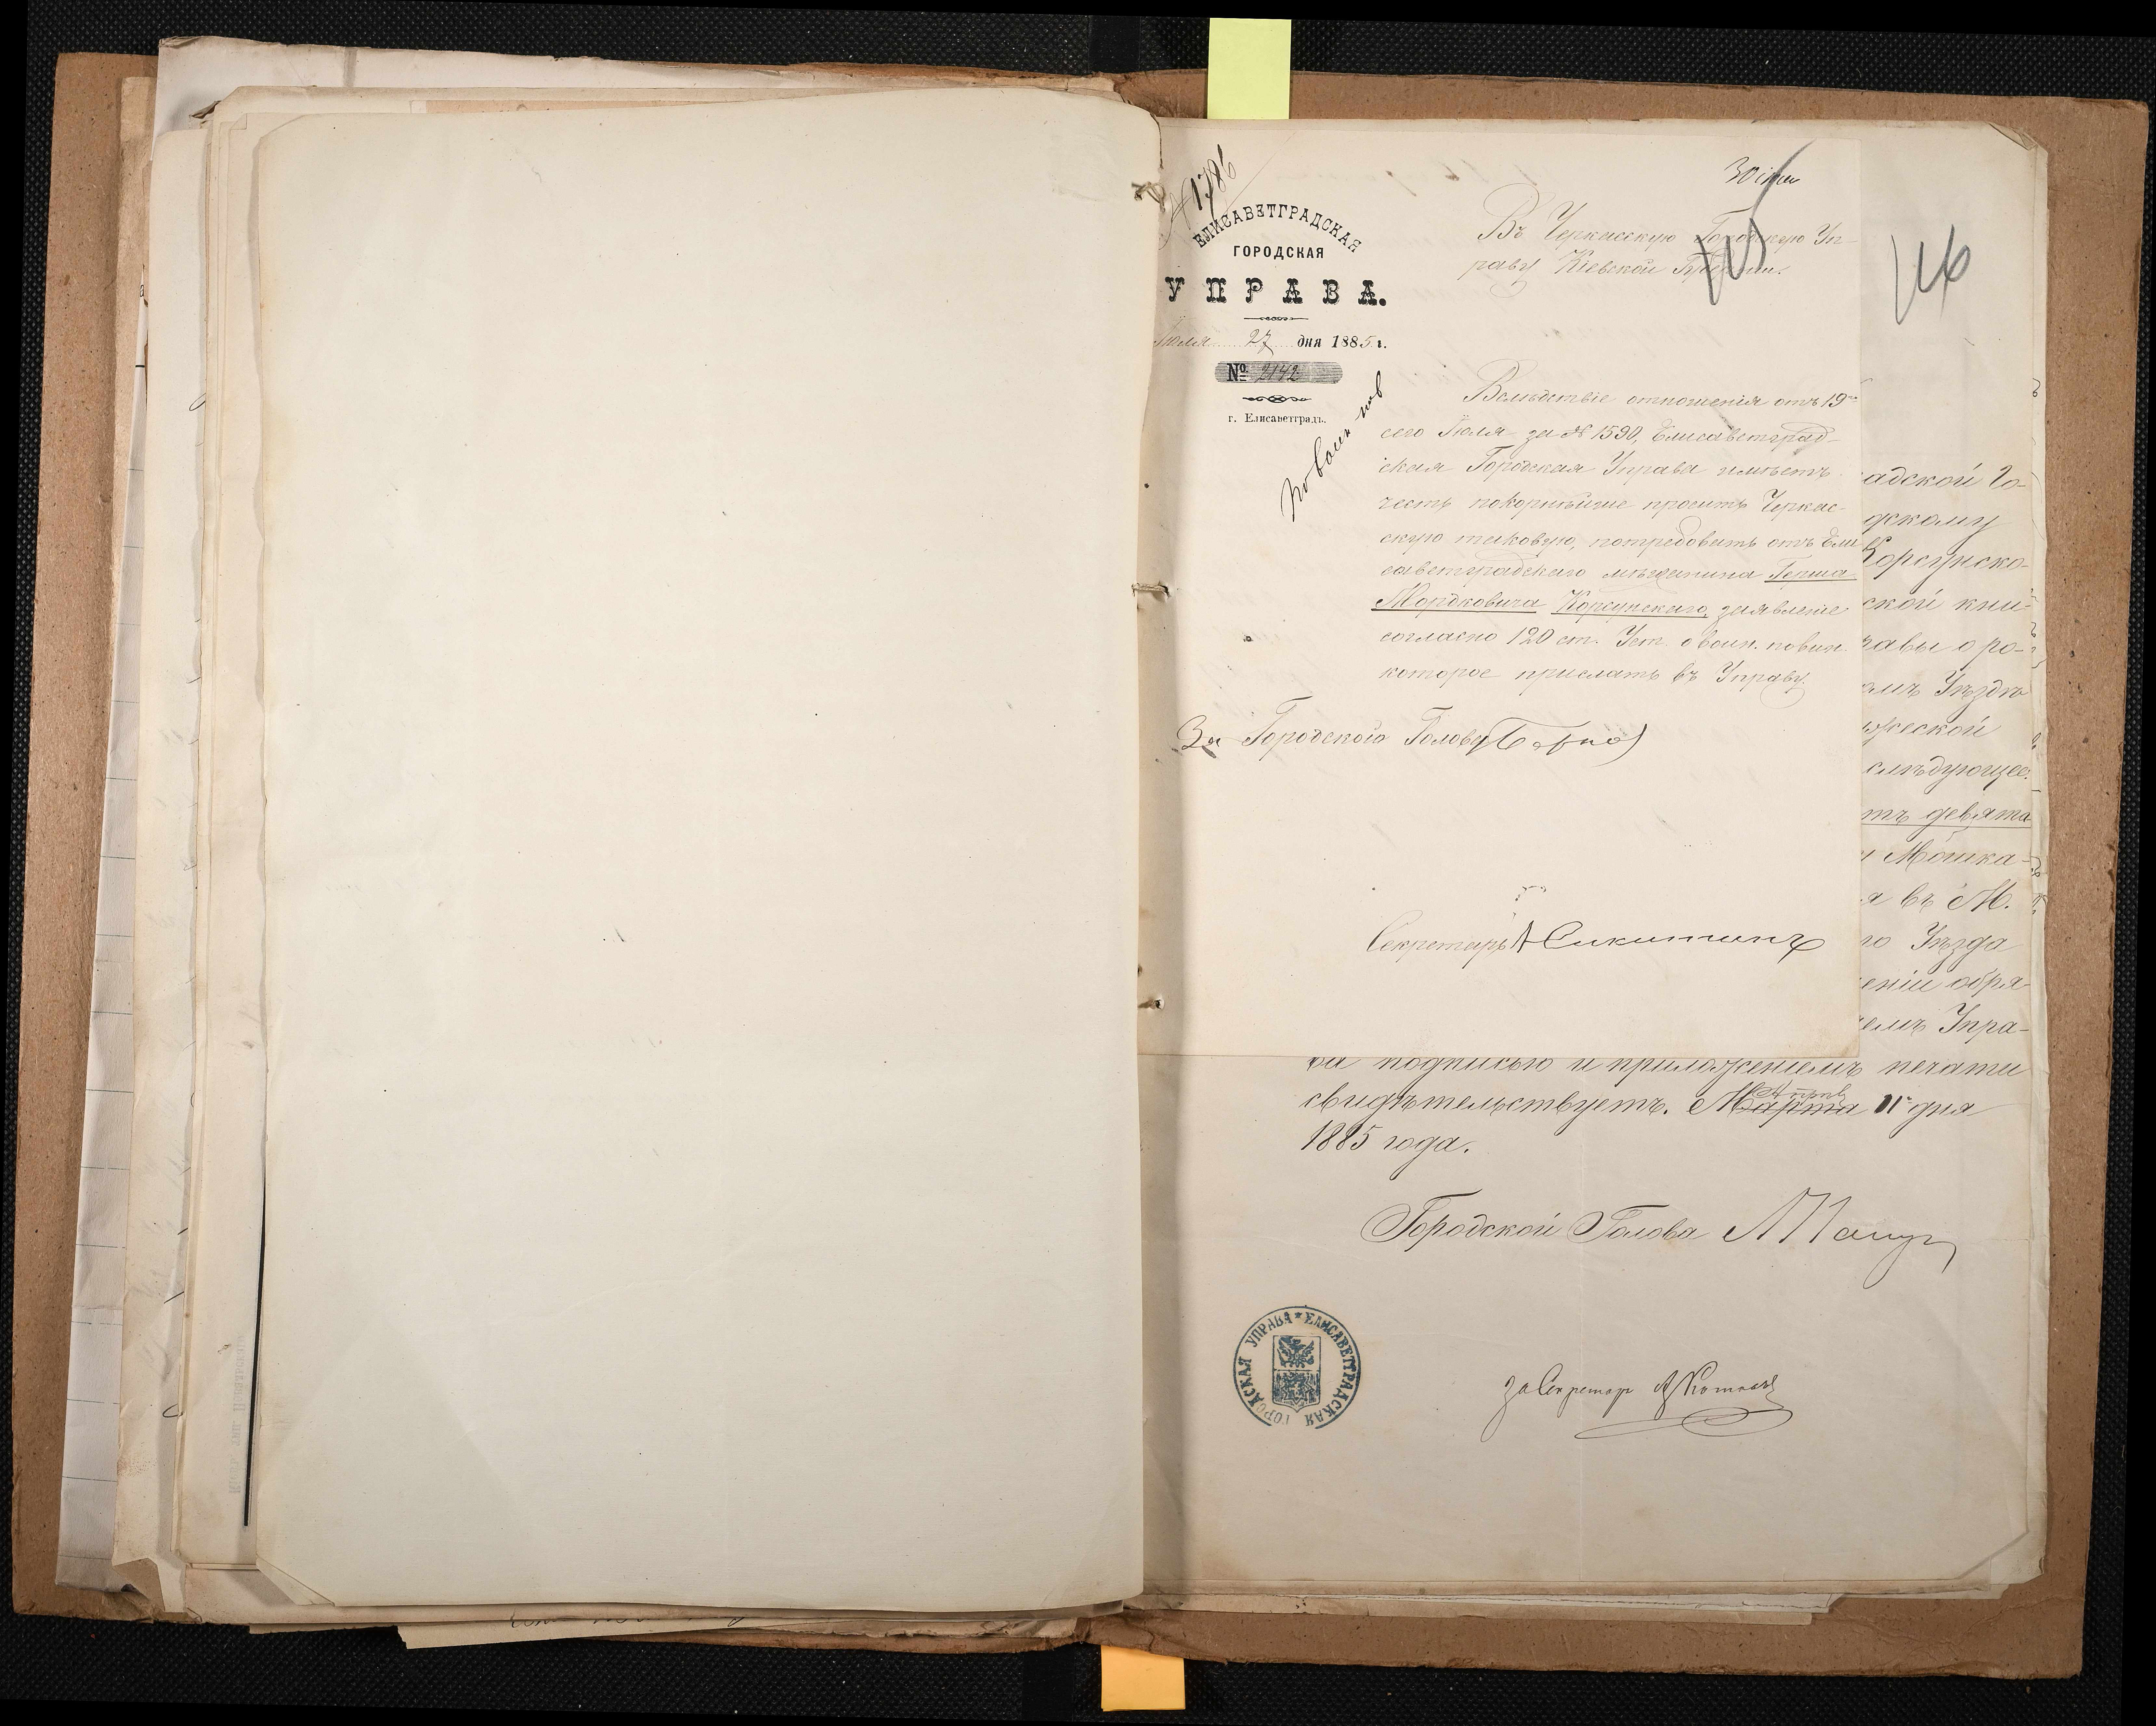 № 1786
ЕЛИСАВЕТГРАДСКАЯ
ГОРОДСКАЯ
УПРАВА.
Іюля 27 дня 1885 г.
№ 2142
г. Елисаветградъ.
30 іюля
Въ Черкасскую Городскую Уп-
раву Кіевской Губерніи.
116
По воин. пов
Вслѣдствіе отношенія отъ 19го
сего Іюля за № 1590, Елисаветград-
ская Городская Управа имѣетъ
честь покорнѣйше просить Черкас-
скую таковую, потребовать отъ Ели
саветградскаго мѣщанина Герша
Мордковича Корсунскаго, заявленіе
согласно 120 ст. Уст. о воин. повин.
которое прислать въ Управу.
За Городского Голову
Секретарь Никитинъ
адской Го-
дскому
Корсунско-
ской кни-
равы о ро-
омъ Уѣздѣ
жеской
слѣдующее:
тъ девята
и Мошка-
я въ М.
го Уѣзда
еніи обря-
емъ Упра-
ва подписью и приложеніемъ печати
свидѣтельствуетъ. Марта Апрѣля 11 дня
1885 года.
Городской Голова
ЕЛИСАВЕТГРАДСКАЯ ГОРОДСКАЯ УПРАВА
за Секретаря